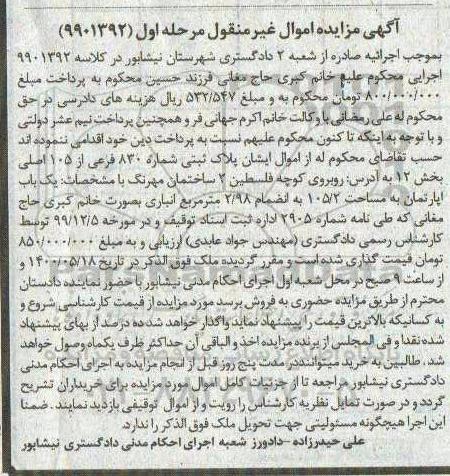 آگهی مزایده اموال غیر منقول مرحله اول (۹۹۰۱۳۹۲)
بموجب اجرائیه صادره از شعبه ۲ دادگستری شهرستان نیشابور در کلاسه ۹۹۰۱۳۹۲
اجرایی محکوم علیهم خانم کبری حاج مغانی فرزند حسین محکوم به پرداخت مبلغ
۸۰۰/۰۰۰/۰۰۰ تومان محکوم به و مبلغ ۵۳۲/۵۴۷ ریال هزینه های دادرسی در حق
محکوم له علی رمضانی با وکالت خانم اکرم جهانی فر و همچنین پرداخت نیم عشر دولتی
و با توجه به اینکه تا کنون محکوم علیهم نسبت به پرداخت دین خود اقدامی ننموده اند
حسب تقاضای محکوم له از اموال ایشان پلاک ثبتی شماره ۸۳۰ فرعی از ۱۰۵ اصلی
بخش ۱۲ به آدرس: روبروی کوچه فلسطین ۲ ساختمان مهرنگ با مشخصات: یک باب
اپارتمان به مساحت ۱۰۵/۲ به انضمام ۲/۹۸ مترمربع انباری بصورت خانم کبری حاج
مغانی که طی نامه شماره ۲۹۰۵ اداره ثبت اسناد توقیف و در مورخه ۹۹/۱۲/۵ توسط
کارشناس رسمی دادگستری (مهندس جواد عابدی) ارزیابی و به مبلغ ۸۵۰/۰۰۰/۰۰۰
تومان قیمت گذاری شده است و مقرر گردیده ملک فوق الذکر در تاریخ ۱۴۰۰/۰۵/۱۸ و
از ساعت ۹ صبح در محل شعبه اول اجرای احکام مدنی نیشابور با حضور نماینده دادستان
محترم از طریق مزایده حضوری به فروش برسد مورد مزایده از قیمت کارشناسی شروع و
به کسانیکه بالاترین قیمت را پیشنهاد نماید واگذار خواهد شد ده درصد از بهای پیشنهاد
شده نقدا و فی المجلس از برنده مزایده اخذ و الباقی آن حداکثر ظرف یکماه وصول خواهد
شد. طالبین به خرید میتوانند در مدت پنج روز قبل از انجام مزایده به اجرای احکام مدنی
دادگستری نیشابور مراجعه تا از جزئیات کامل اموال مورد مزایده برای خریداران تشریح
گردد و در صورت تمایل نظریه کارشناس را رویت و از اموال توقیفی بازدید نمایند. ضمنا
این اجرا هیچگونه مسئولیتی جهت تحویل ملک فوق الذکر را ندارد.
علی حیدرزاده - دادورز شعبه اجرای احکام مدنی دادگستری نیشابور